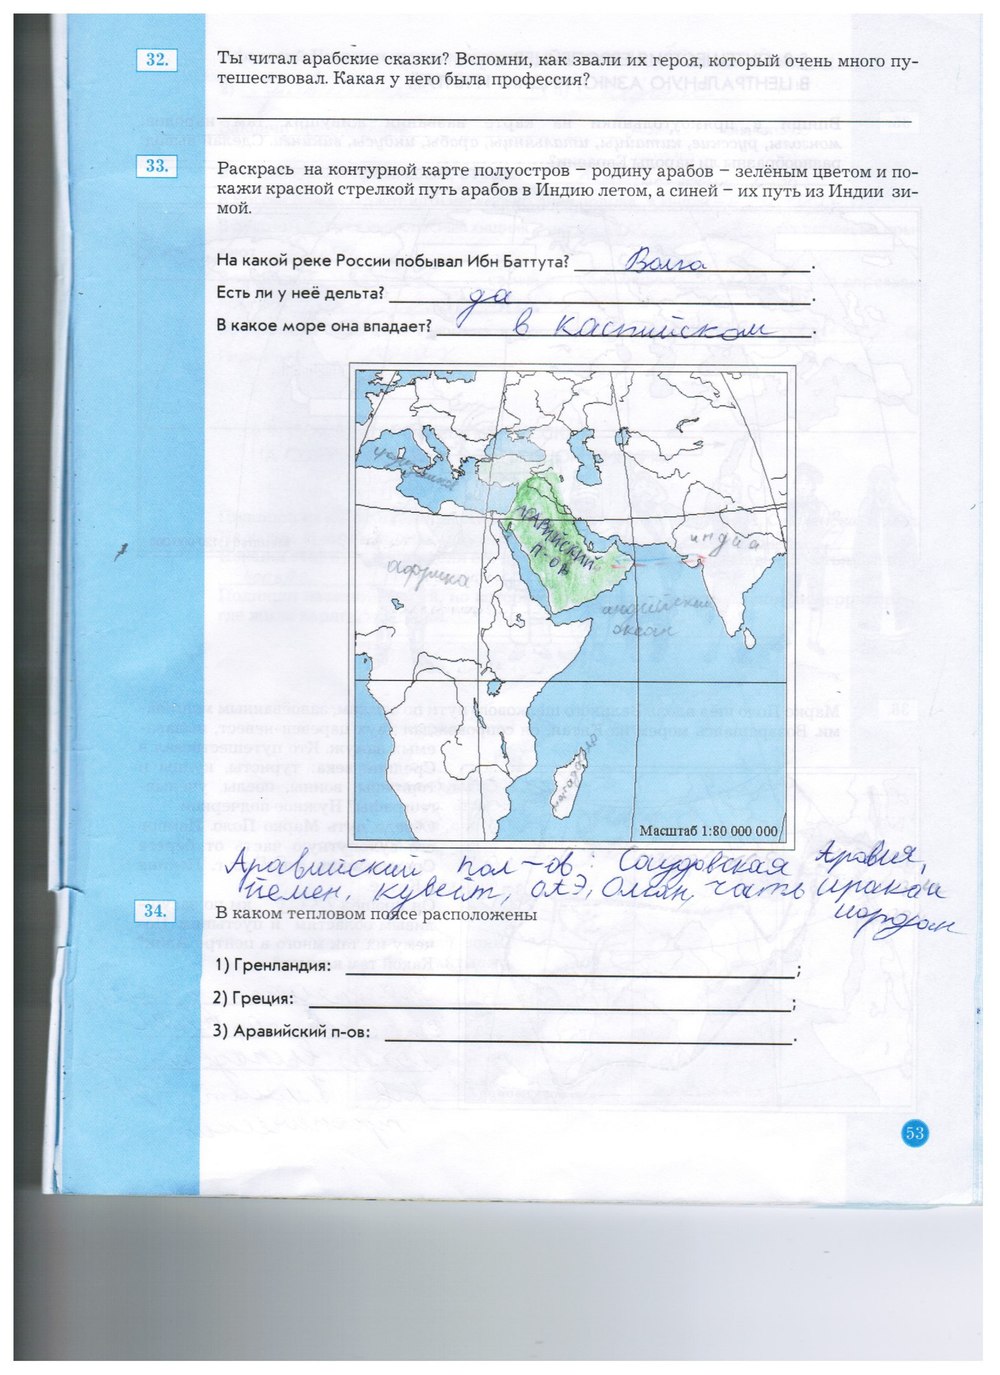 32.
Ты читал арабские сказки? Вспомни, как звали их героя, который очень много пу-
тешествовал. Какая у него была профессия?
33.
Раскрась на контурной карте полуостров – родину арабов – зелёным цветом и по-
кажи красной стрелкой путь арабов в Индию летом, а синей – их путь из Индии зи-
мой.
На какой реке России побывал Ибн Баттута? Волга .
Есть ли у неё дельта? да .
В какое море она впадает? в каспийском .
АРАВИЙСКИЙ
П-ОВ
индия
африка
индийский
океан
мадагаскар
Масштаб 1:80 000 000
Аравийский пол-ов: Саудовская Аравия,
йемен, кувейт, оАЭ, Оман, часть ирака и
иордан
34.
В каком тепловом поясе расположены
1) Гренландия: ;
2) Греция: ;
3) Аравийский п-ов: .
53